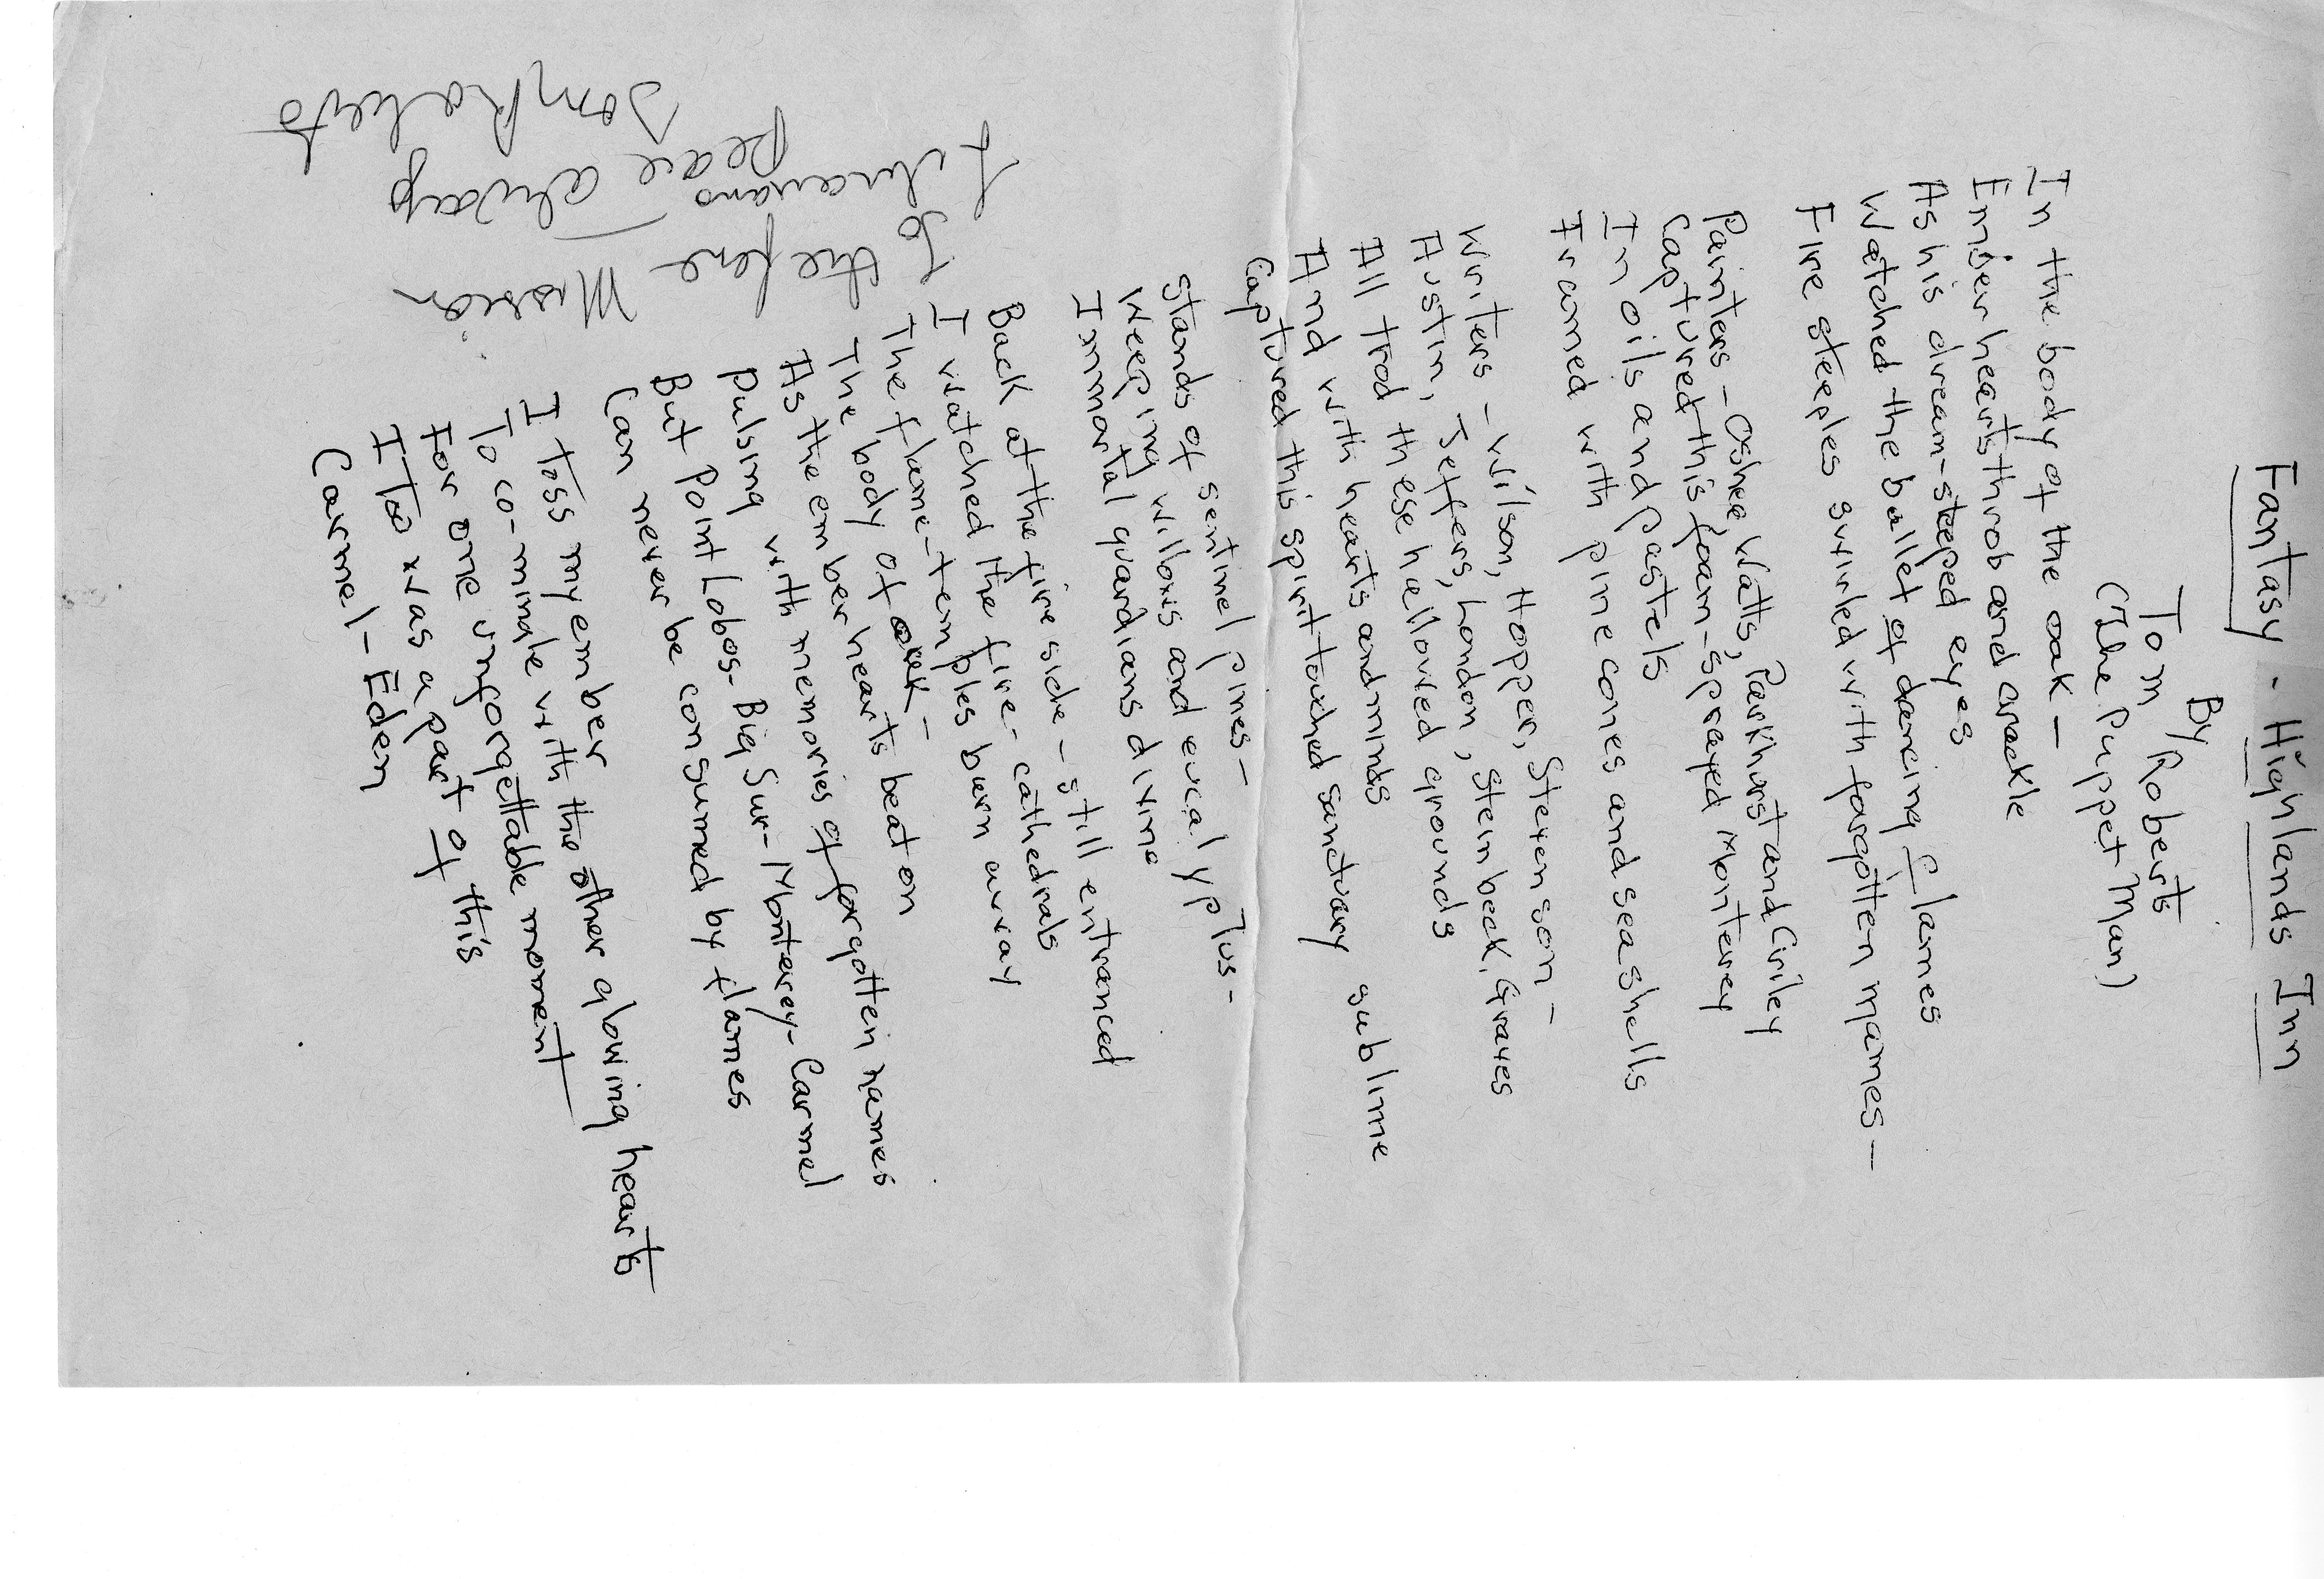 Fantasy - Highlands Inn
By
Tom Roberts
(The Puppet Man)
In the body of the oak —
Ember hearts throb and crackle
As his dream-steeped eyes
Watched the ballet of dancing flames
Fire steeples swirled with forgotten names —
Painters - Oshee, Watts, Parkhurst and Criley
Captured this foam-sprayed Monterey
In oils and pastels
Framed with pine cones and seashells
Writers - Wilson, Hopper, Stevenson —
Austin, Jeffers, London, Steinbeck, Graves
All trod these hallowed grounds
And with hearts and minds sublime
Captured this spirit touched sanctuary
Stands of sentinel pines —
Weeping willows and eucalyptus -
Immortal guardians divine
Back at the fire side - still entranced
I watched the fire - cathedrals
The flame-temples burn away
The body of oak —
As the ember hearts beat on
Pulsing with memories of forgotten names
But Point Lobos - Big Sur - Monterey - Carmel
Can never be consumed by flames
I toss my ember
To co-mingle with the other glowing hearts
For one unforgettable moment
I too was a part of this
Carmel - Eden
To the fine Mission
Librarians
peace always
Tom Roberts